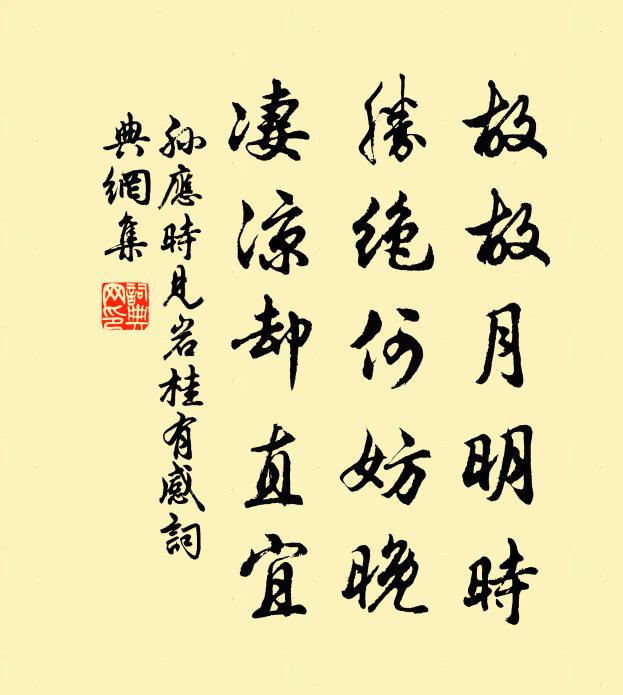 故故月明時
勝絶何妨晚
淒涼却直宜
孫應時見岩桂有感詞
典網集
詞典
网印